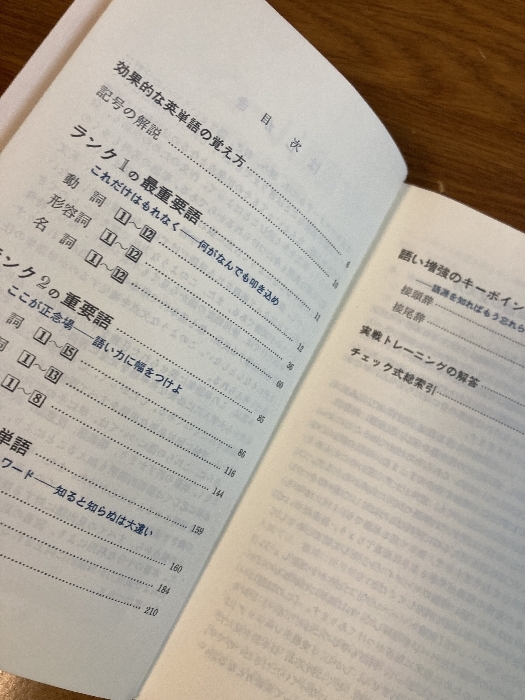 目次
効果的な英単語の覚え方 6
記号の解説 10
ランク1の最重要語 11
これだけはもれなく――何がなんでも叩き込め
動詞 1~12 12
形容詞 1~12 36
名詞 1~12 60
ランク2の重要語 85
ここが正念場――語い力に幅をつけよ
詞 1~15 86
詞 1~13 116
1~8 144
単語 159
ワード――知ると知らぬは大違い
160
184
210
語い増強のキーポイン
――語源を知ればもう忘れら
接頭辞
接尾辞
実戦トレーニングの解答
チェック式総索引